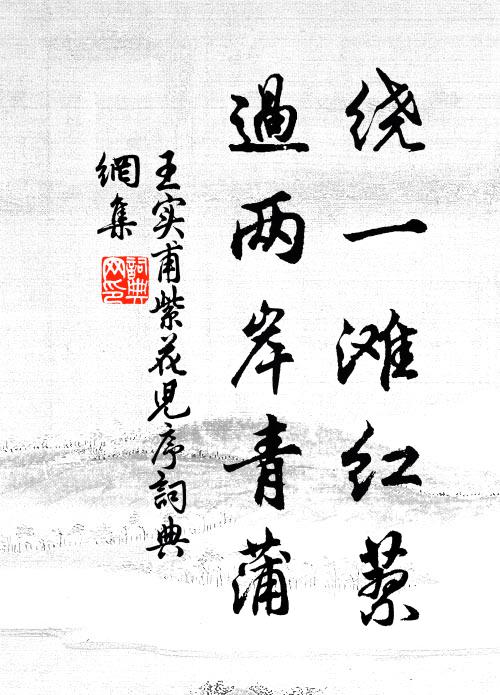 绕一滩红蓼
過两岸青蒲
王实甫紫花儿序詞典
網集
詞典
网印